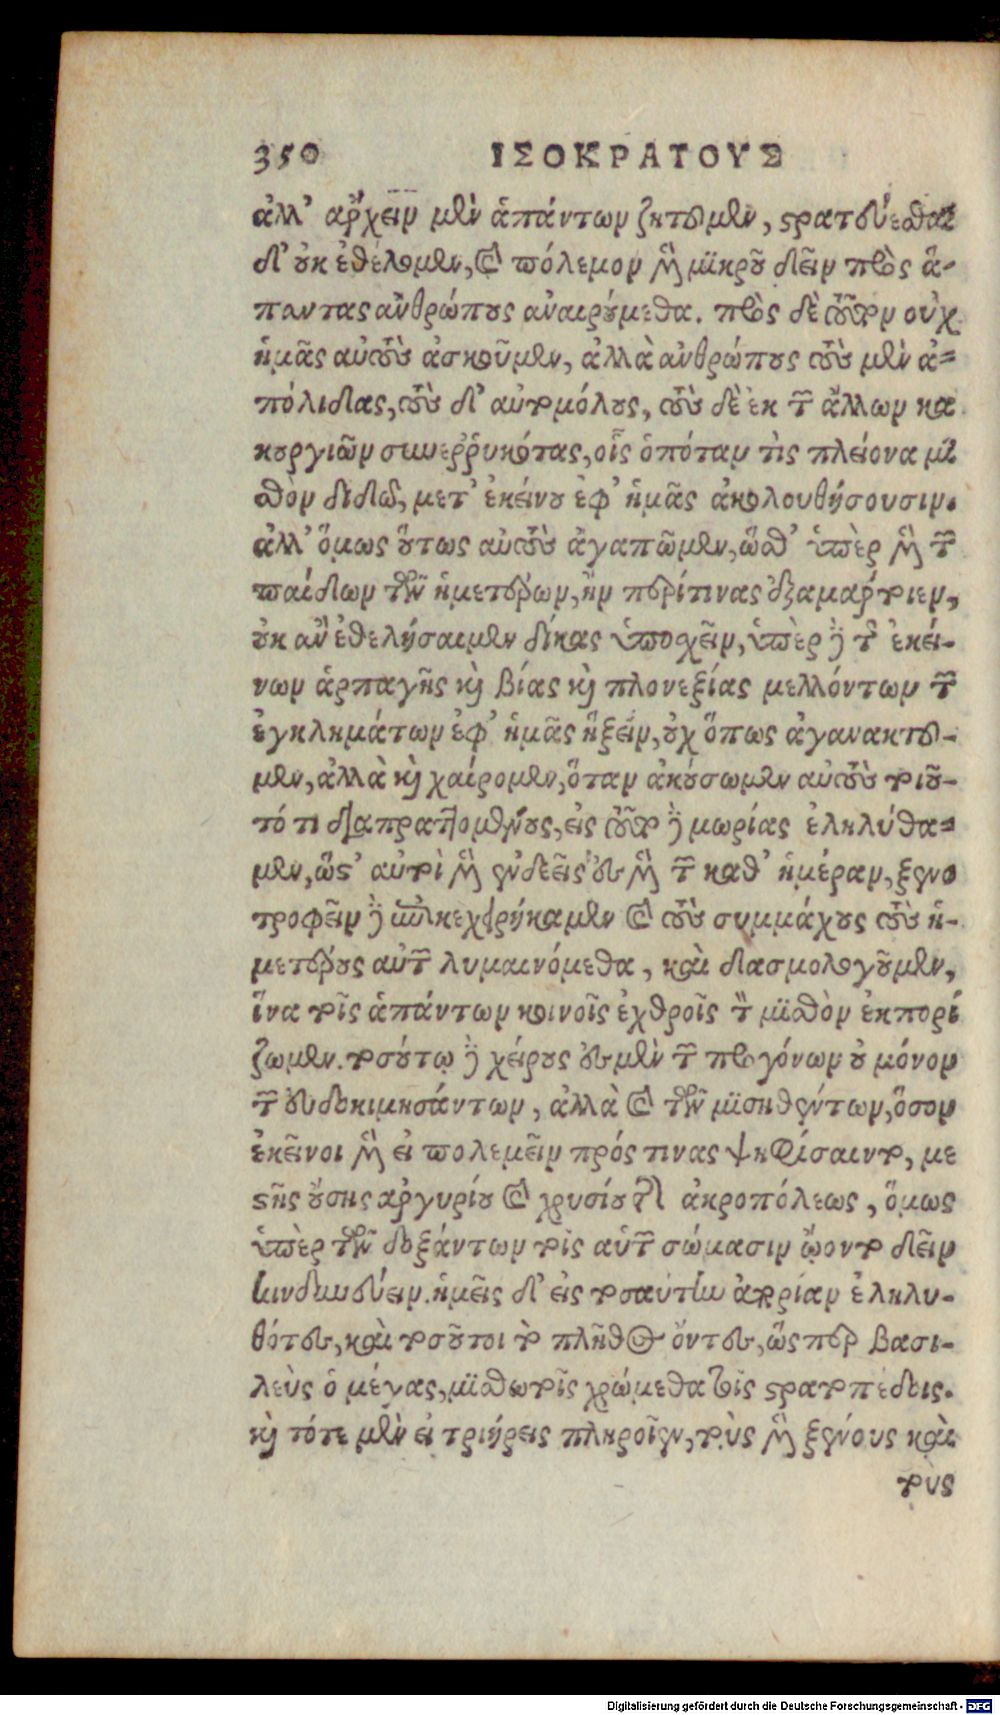 350 ΙΣΟΚΡΑΤΟΥΣ
ἀλλ' ἄρχειν μὲν ἁπάντων ζητοῦμεν, στρατεύεσθαι
δ' οὐκ ἐθέλομεν, καὶ πόλεμον μὲν μικροῦ δεῖν πρὸς ἅ-
παντας ἀνθρώπους ἀναιρούμεθα. πρὸς δὲ τοῦτον οὐχ
ἡμᾶς αὐτοὺς ἀσκοῦμεν, ἀλλὰ ἀνθρώπους τοὺς μὲν ἀ-
πόλιδας, τοὺς δ' αὐτομόλους, τοὺς δὲ ἐκ τῶν ἄλλων κα
κουργιῶν συνερρυηκότας, οἷς ὁπόταν τὶς πλείονα μι
σθὸν διδῷ, μετ' ἐκείνου ἐφ' ἡμᾶς ἀκολουθήσουσιν.
ἀλλ' ὅμως οὕτως αὐτοὺς ἀγαπῶμεν, ὥσθ' ὑπὲρ μὲν τῶν
παίδων τῶν ἡμετέρων, ἢν περίτινας ἐξαμάρτοιεν,
οὐκ ἂν ἐθελήσαιμεν δίκας ὑποχεῖν, ὑπὲρ δὲ τῆς ἐκεί-
νων ἁρπαγῆς καὶ βίας καὶ πλονεξίας μελλόντων τῶν
ἐγκλημάτων ἐφ' ἡμᾶς ἥξειν, οὐχ ὅπως ἀγανακτοῦ-
μεν, ἀλλὰ καὶ χαίρομεν, ὅταν ἀκούσωμεν αὐτοὺς τοιοῦ-
τό τι διαπραττομένους, εἰς τοῦτο δὲ μωρίας ἐληλύθα-
μεν, ὥστ' αὐτοὶ μὲν ἐνδεεῖς ἐσμὲν τῶν καθ' ἡμέραν, ξενο
τροφεῖν δὲ ἐπικεχειρήκαμεν καὶ τοὺς συμμάχους τοὺς ἡ-
μετέρους αὐτῶν λυμαινόμεθα, καὶ δασμολογοῦμεν,
ἵνα τοῖς ἁπάντων κοινοῖς ἐχθροῖς τὸν μισθὸν ἐκπορί
ζωμεν. τοσούτῳ δὲ χείρους ἐσμὲν τῶν προγόνων οὐ μόνον
τῶν εὐδοκιμησάντων, ἀλλὰ καὶ τῶν μισηθέντων, ὅσον
ἐκεῖνοι μὲν εἰ πολεμεῖν πρός τινας ψηφίσαιντο, με
στῆς οὔσης ἀργυρίου καὶ χρυσίου τῆς ἀκροπόλεως, ὅμως
ὑπὲρ τῶν δοξάντων τοῖς αὑτῶν σώμασιν ᾤοντο δεῖν
κινδυνεύειν. ἡμεῖς δ' εἰς τοσαύτην ἀπορίαν ἐληλυ-
θότες, καὶ τοσοῦτοι τὸ πλῆθος ὄντες, ὥσπερ βασι-
λεὺς ὁ μέγας, μισθωτοῖς χρώμεθα τοῖς στρατοπέδοις.
καὶ τότε μὲν εἰ τριήρεις πληροῖεν, τοὺς μὲν ξένους καὶ
τοὺς
Digitalisierung gefördert durch die Deutsche Forschungsgemeinschaft - DFG